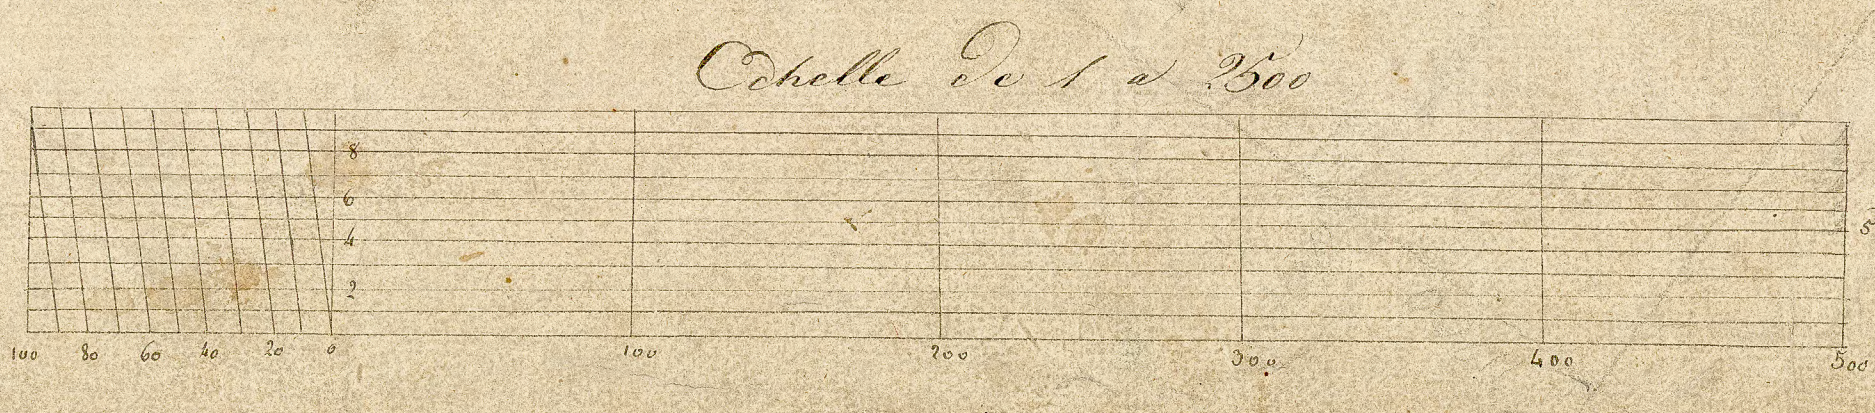 Echelle de 1 a 2500
8
6
4
5
2
100 80 60 40 20 0 100 200 300 400 500